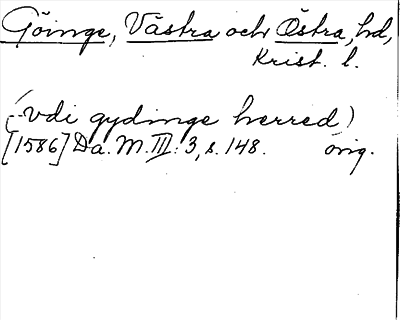 Göinge, Västra och Östra, hd,
Krist. l.
(vdi gydinge herred)
[1586] Da. M. III: 3, s. 148. orig.